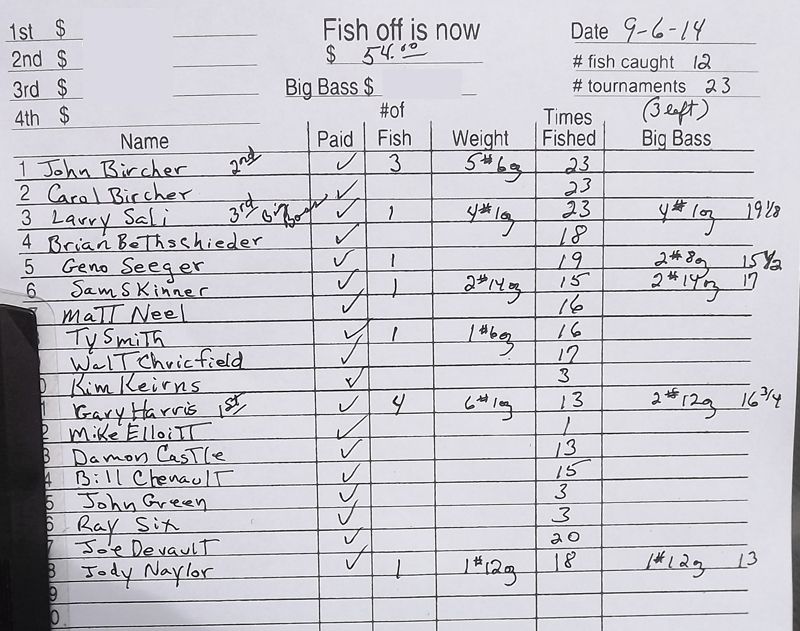 1st $ Fish off is now Date 9-6-14
2nd $ $ 54.00 # fish caught 12
3rd $ Big Bass $ # tournaments 23
4th $ (3 left)
Name Paid #of Fish Weight Times Fished Big Bass
1 John Bircher 2nd ✓ 3 5# 6oz 23
2 Carol Bircher ✓ 23
3 Larry Sali 3rd Big Bass ✓ 1 4# 1oz 23 4# 1oz 19 1/8
4 Brian Bethschieder ✓ 18
5 Geno Seeger ✓ 1 19 2# 8oz 15 1/2
6 Sam Skinner ✓ 1 2# 14oz 15 2# 14oz 17
7 Matt Neel ✓ 16
Ty Smith ✓ 1 1# 6oz 16
Walt Chricfield ✓ 17
0 Kim Keirns ✓ 3
1 Gary Harris 1st ✓ 4 6# 1oz 13 2# 12oz 16 3/4
2 Mike Elloitt ✓ 1
3 Damon Castle ✓ 13
4 Bill Chenault ✓ 15
5 John Green ✓ 3
6 Ray Six ✓ 3
7 Joe Devault ✓ 20
8 Jody Naylor ✓ 1 1# 12oz 18 1# 12oz 13
9
0